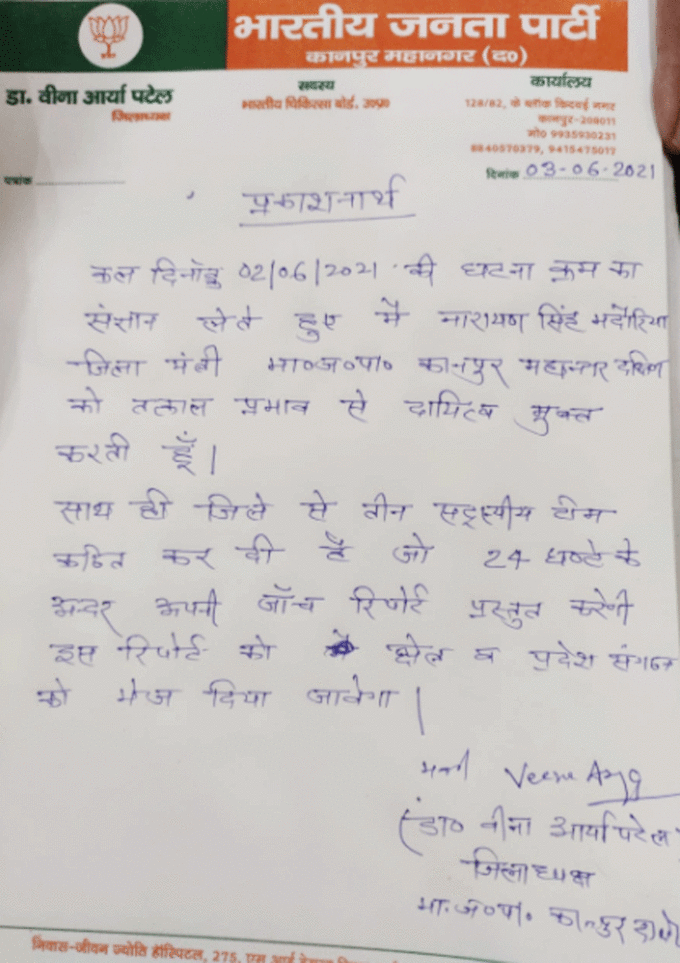 भारतीय जनता पार्टी
कानपुर महानगर (द०)
डा. वीना आर्या पटेल
जिलाध्यक्ष
सदस्य
भारतीय चिकित्सा बोर्ड, उ०प्र०
कार्यालय
128/82, के ब्लॉक किदवई नगर
कानपुर-208011
मो० 9935930231
8840570379, 9415475017
पत्रांक
दिनांक 03-06-2021
प्रकाशनार्थ
कल दिनाँक 02/06/2021 की घटना क्रम का
संज्ञान लेते हुए मै नारायण सिंह भदौरिया
जिला मंत्री भा०ज०पा० कानपुर महानगर दक्षिण
को तत्काल प्रभाव से दायित्व मुक्त
करती हूँ।
साथ ही जिले से तीन सदस्यीय टीम
कठित कर दी है जो 24 घण्टे के
अन्दर अपनी जाँच रिपोर्ट प्रस्तुत करेगी
इस रिपोर्ट को क्षेत्र व प्रदेश संगठन
को भेज दिया जावेगा।
Veena Arya
(डा० वीना आर्या पटेल)
जिलाध्यक्ष
भा.ज०पा. कानपुर
निवास-जीवन ज्योति हॉस्पिटल, 275, एम आई